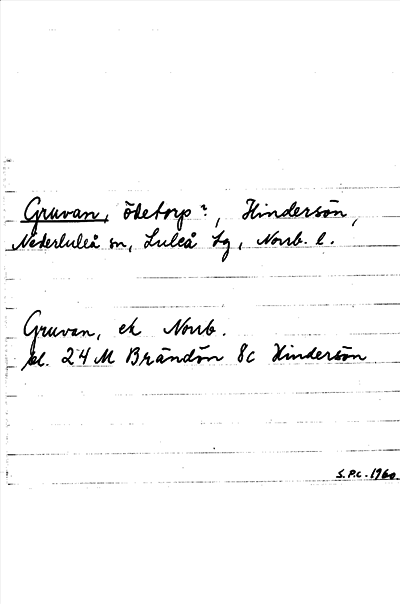 Gruvan, ödetorp?, Hindersön,
Nederluleå sn, Luleå tg, Norrb. l.
Gruvan, ek Norrb.
bl. 24 M Brändön 8c Hindersön
S.P.C. 1960.